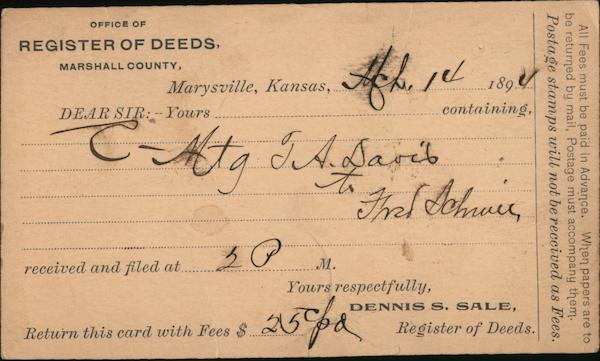 OFFICE OF
REGISTER OF DEEDS,
MARSHALL COUNTY,
Marysville, Kansas, Mch. 14 1894
DEAR SIR:-Yours containing,
C- Mtg T A. Davis
to
Fred
received and filed at 2 P M.
Yours respectfully,
DENNIS S. SALE,
Return this card with Fees $ 25c pd Register of Deeds.
All Fees must be paid in Advance. When papers are to
be returned by mail, Postage must accompany them.
Postage stamps will not be received as Fees.